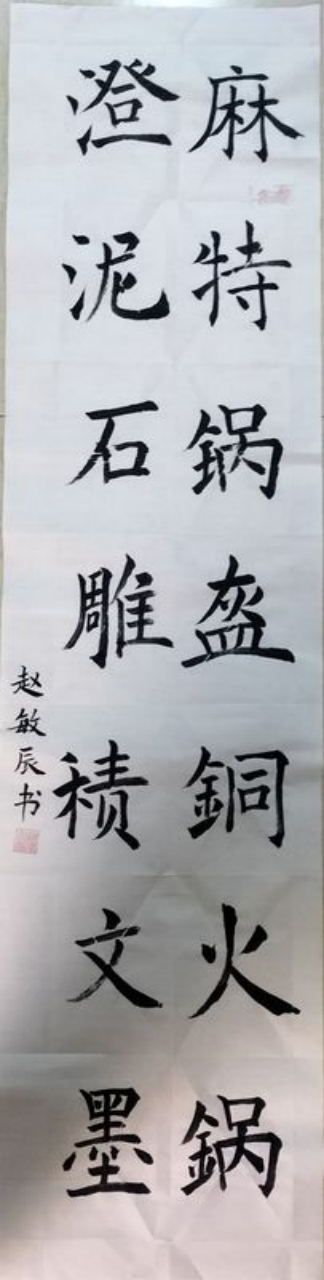 麻特锅盔銅火鍋
澄泥石雕積文墨
赵敏辰书